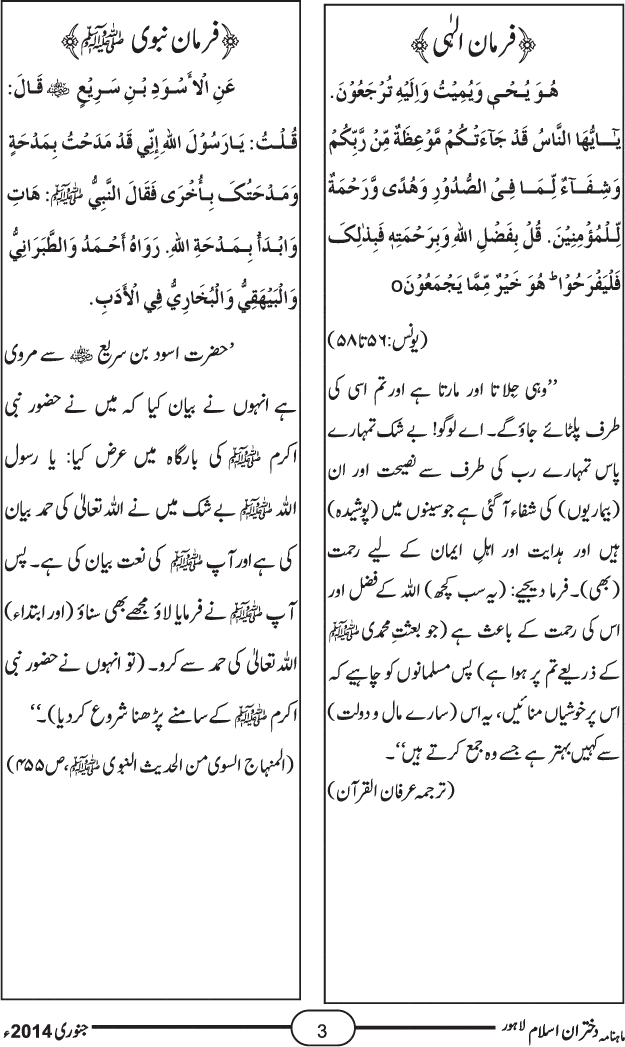 ﴿فرمان الٰہی﴾
هُوَ يُحْيٖ وَيُمِيْتُ وَاِلَيْهِ تُرْجَعُوْنَ.
يٰـاَيُّهَا النَّاسُ قَدْ جَآءَتْكُمْ مَّوْعِظَةٌ مِّنْ رَّبِّكُمْ
وَشِفَـآءٌ لِّمَـا فِی الصُّدُوْرِ وَهُدًى وَّرَحْمَةٌ
لِّلْمُؤْمِنِيْنَ. قُلْ بِفَضْلِ اللهِ وَبِرَحْمَتِهٖ فَبِذٰلِكَ
فَلْيَفْرَحُوْا ؕ هُوَ خَيْرٌ مِّمَّا يَجْمَعُوْنَo
(یونس:۵۶تا۵۸)
’’وہی جِلاتا اور مارتا ہے اورتم اسی کی
طرف پلٹائے جاؤگے۔ اے لوگو! بے شک تمہارے
پاس تمہارے رب کی طرف سے نصیحت اور ان
(بیماریوں) کی شفاء آگئی ہے جو سینوں میں (پوشیدہ)
ہیں اور ہدایت اور اہلِ ایمان کے لیے رحمت
(بھی)۔ فرما دیجیے: (یہ سب کچھ) اللہ کے فضل اور
اس کی رحمت کے باعث ہے (جو بعثتِ محمدی ﷺ
کے ذریعے تم پر ہوا ہے) پس مسلمانوں کو چاہیے کہ
اس پر خوشیاں منائیں، یہ اس (سارے مال و دولت)
سے کہیں بہتر ہے جسے وہ جمع کرتے ہیں‘‘۔
(ترجمہ عرفان القرآن)
﴿فرمان نبوی ﷺ﴾
عَنِ الْأَسْوَدِ بْنِ سَرِيْعٍ ﷺ قَالَ:
قُلْتُ: يَا رَسُوْلَ اللهِ إِنِّي قَدْ مَدَحْتُ بِمَدْحَةٍ
وَمَدْحَتُكَ بِأُخْرَى فَقَالَ النَّبِيُّ ﷺ: هَاتِ
وَابْدَأْ بِمَدْحَةِ اللهِ. رَوَاهُ أَحْمَدُ وَالطَّبَرَانِيُّ
وَالْبَيْهَقِيُّ وَالْبُخَارِيُّ فِي الْأَدَبِ.
’حضرت اسود بن سریع ﷺ سے مروی
ہے انہوں نے بیان کیا کہ میں نے حضور نبی
اکرم ﷺ کی بارگاہ میں عرض کیا: یا رسول
اللہ ﷺ بے شک میں نے اللہ تعالیٰ کی حمد بیان
کی ہے اور آپ ﷺ کی نعت بیان کی ہے۔ پس
آپ ﷺ نے فرمایا لاؤ مجھے بھی سناؤ (اور ابتداء)
اللہ تعالیٰ کی حمد سے کرو۔ (تو انہوں نے حضور نبی
اکرم ﷺ کے سامنے پڑھنا شروع کردیا)۔‘‘
(المنہاج السوی من الحدیث النبوی ﷺ، ص۴۵۵)
ماہنامہ دختران اسلام لاہور 3 جنوری 2014ء